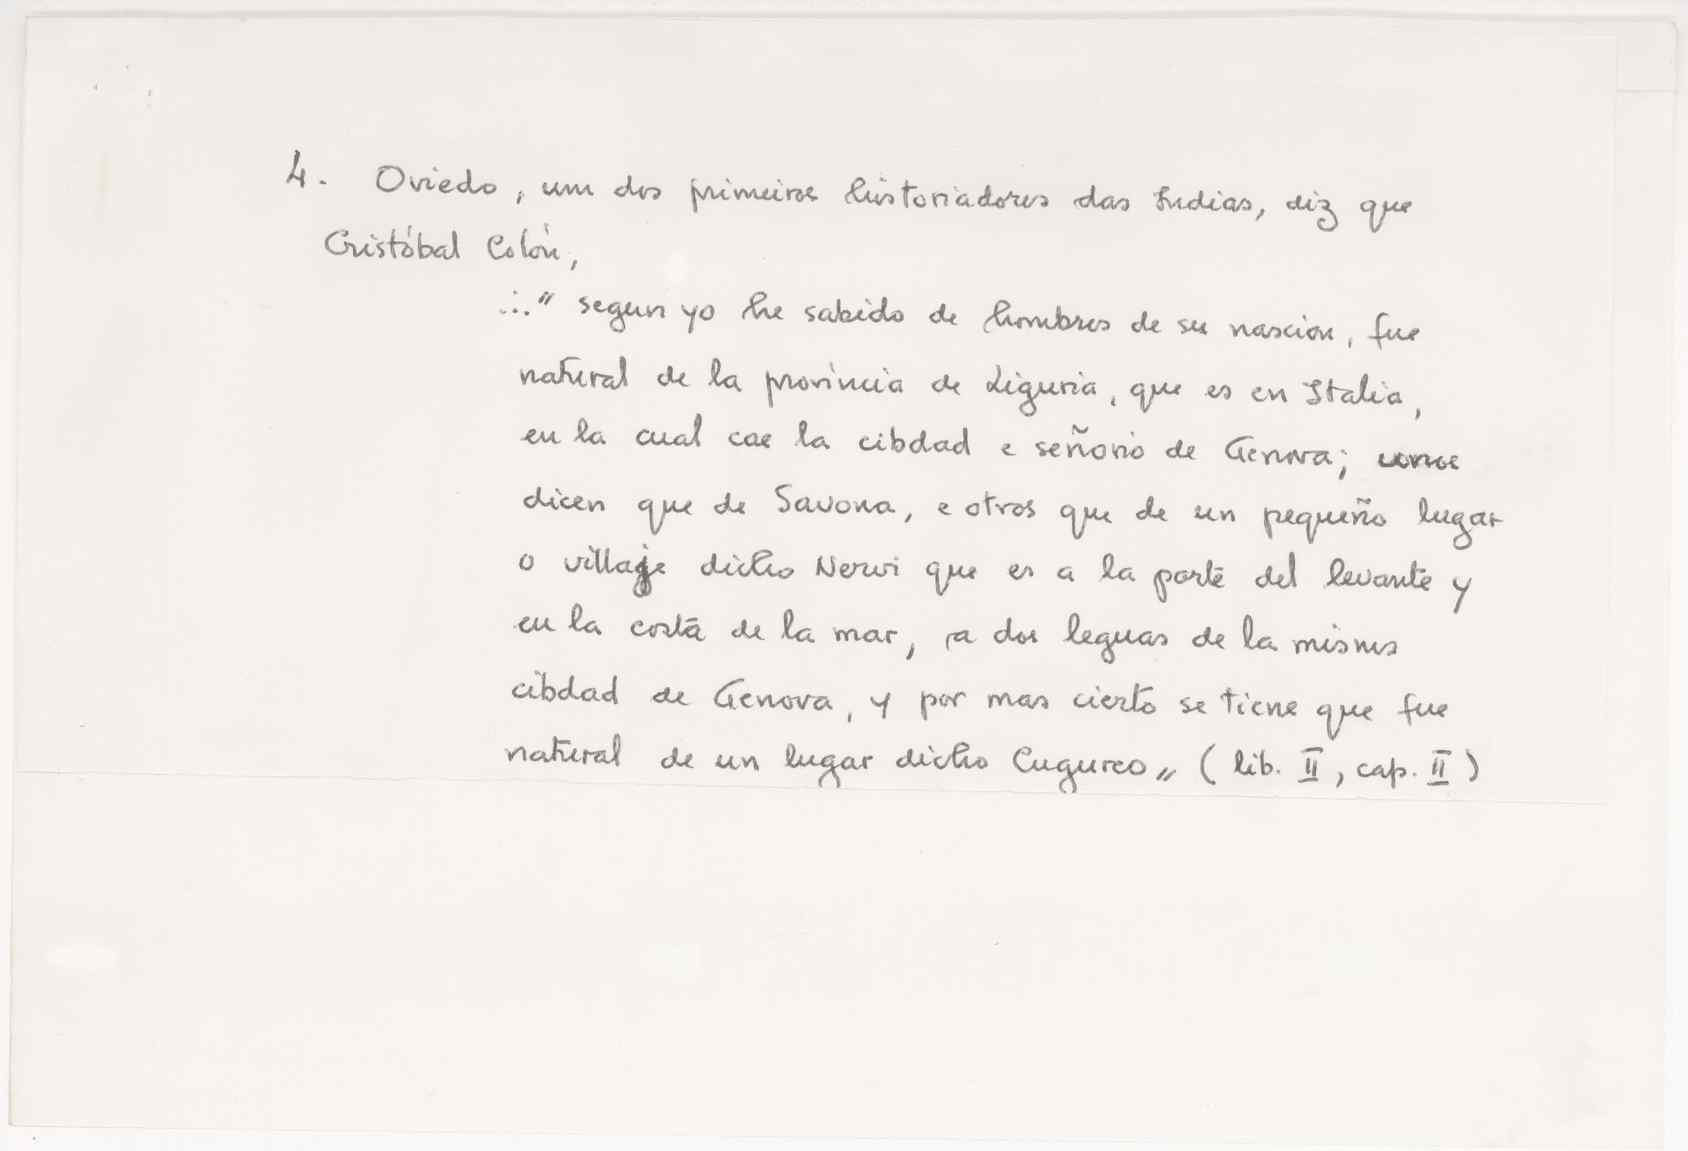 4. Oviedo, um dos primeiros historiadores das Indias, diz que
Cristóbal Colón,
..." segun yo he sabido de hombres de su nascion, fue
natural de la provincia de Liguria, que es en Italia,
en la cual cae la cibdad e señorio de Genova; unos
dicen que de Savona, e otros que de un pequeño lugar
o villaje dicho Nervi que es a la parte del levante y
en la costa de la mar, a dos leguas de la misma
cibdad de Genova, y por mas cierto se tiene que fue
natural de un lugar dicho Cugureo" (lib. II, cap. II)